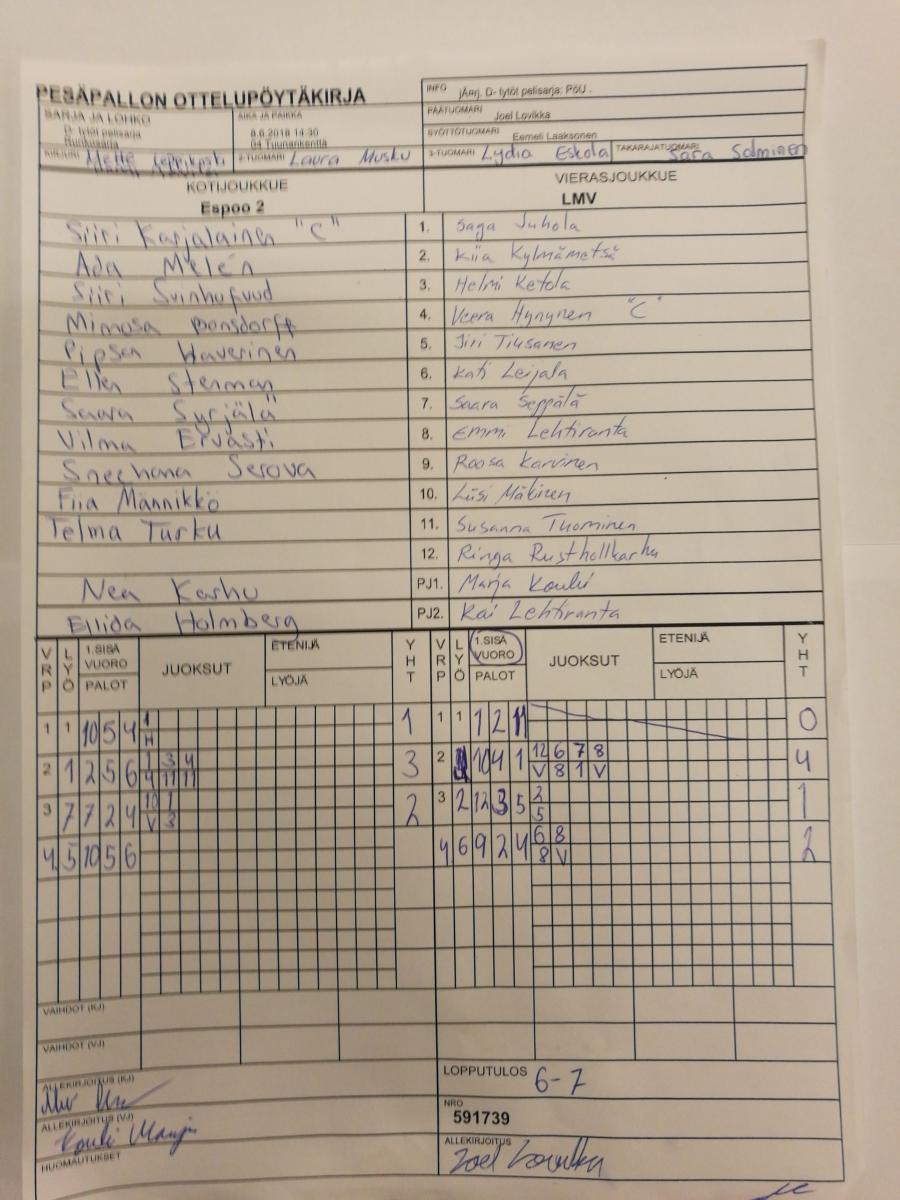 PESÄPALLON OTTELUPÖYTÄKIRJA
INFO jÄrrj. D- tytöt pelisarja: PöU .
SARJA JA LOHKO
D- tytöt pelisarja
Runkosarja
AIKA JA PAIKKA
8.6.2018 14:30
04 Tuunankenttä
PÄÄTUOMARI Joel Lovikka
SYÖTTÖTUOMARI Eemeli Laaksonen
KIRJURI Mette
2-TUOMARI Laura Musku
3-TUOMARI Lydia Eskola
TAKARAJATUOMARI Sara Salminen
KOTIJOUKKUE
Espoo 2
VIERASJOUKKUE
LMV
Siiri Karjalainen "C" 1. Saga Juhola
Ada Melén 2. Kiia Kylmämetsä
Siiri Svinhufvud 3. Helmi Ketola
Mimosa Bonsdorff 4. Veera Hynynen "C"
Pipsa Haverinen 5. Jiri Tiusanen
Ellen Stenman 6. Kati Leijala
Saara Syrjälä 7. Saara Seppälä
Vilma Ervasti 8. Emmi Lehtiranta
Snezhana Serova 9. Roosa Karvinen
Fiia Männikkö 10. Liisi Mäkinen
Telma Turku 11. Susanna Tuominen
12. Ringa Rusthollkarhu
Nea Karhu PJ1. Marja Kouki
Ellida Holmberg PJ2. Kai Lehtiranta
VRP LYÖ 1.SISÄ VUORO PALOT JUOKSUT ETENIJÄ LYÖJÄ YHT VRP LYÖ 1.SISÄ VUORO PALOT JUOKSUT ETENIJÄ LYÖJÄ YHT
1 1 10 5 4 1 1 1 1 12 11 0
H
2 1 2 5 6 1 3 4 3 2 10 4 1 12 6 7 8 4
4 11 11 V 8 1 V
3 7 7 2 4 10 1 2 3 2 12 3 5 2 1
V 3 5
4. 5 10 5 6 4. 6 9 2 4 6 8 2
8 V
VAIHDOT (KJ)
VAIHDOT (VJ)
ALLEKIRJOITUS (KJ)
LOPPUTULOS 6-7
ALLEKIRJOITUS (VJ) Kouki Marja
NRO
591739
HUOMAUTUKSET
ALLEKIRJOITUS Joel Lovikka